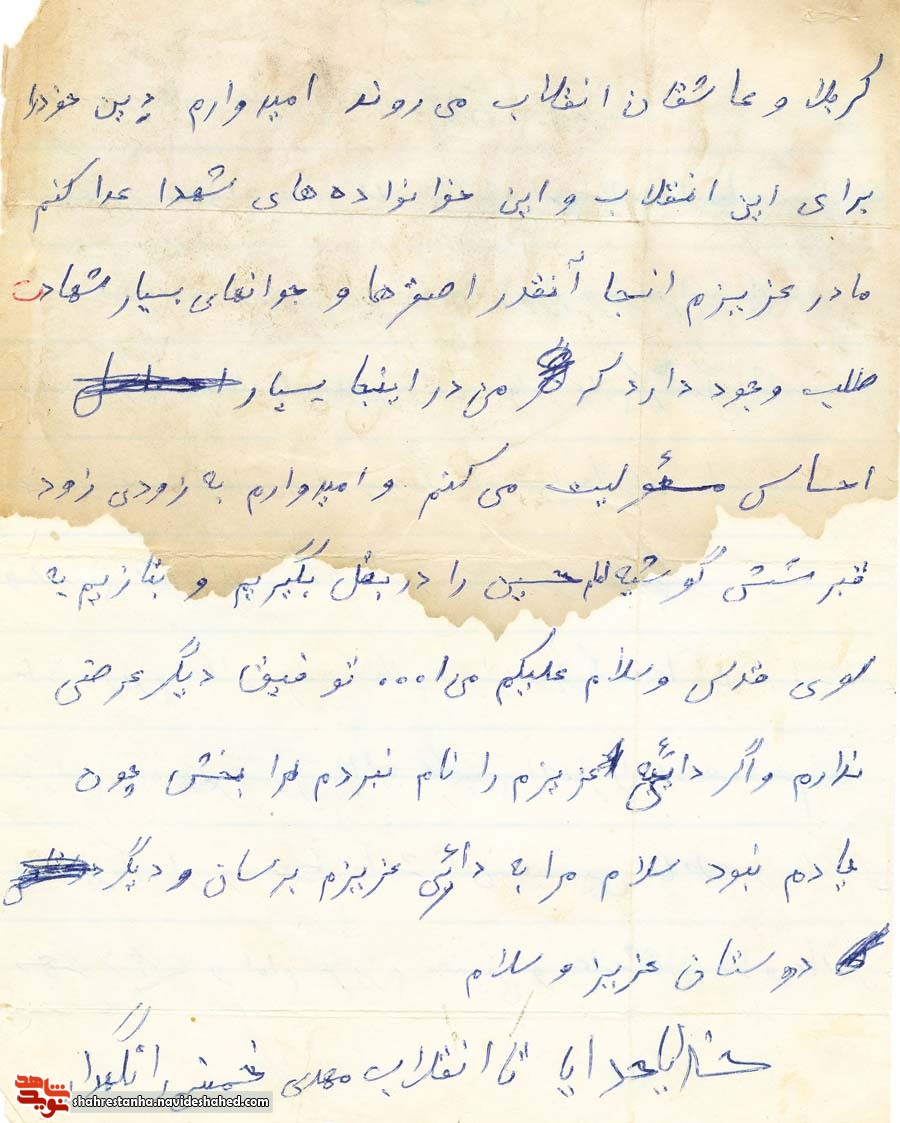 کربلا و عاشقان انقلاب می روند امیدوارم دین خودرا
برای این انقلاب و این خوانواده های شهدا عدا کنم
مادر عزیزم انجا آنقدر اصغرها و جوانهای بسیار شهادت
طلب وجود دارد که من در اینجا بسیار
احساس مسئولیت می کنم و امیدوارم به زودی زود
قبر شش گوشیه امام حسین را در بغل بگیریم و بتازیم به
سوی قدس وسلام علیکم مرا ... توفیق دیگر عرضی
ندارم واگر دائی عزیزم را نام نبردم مرا بخش چون
یادم نبود سلام مرا به دائی عزیزم برسان و دیگر
دوستان عزیز وسلام
خدایا خدایا تا انقلاب مهدی خمینی را نگهدار
شاهد
نوید
shahrestanha.navideshahed.com